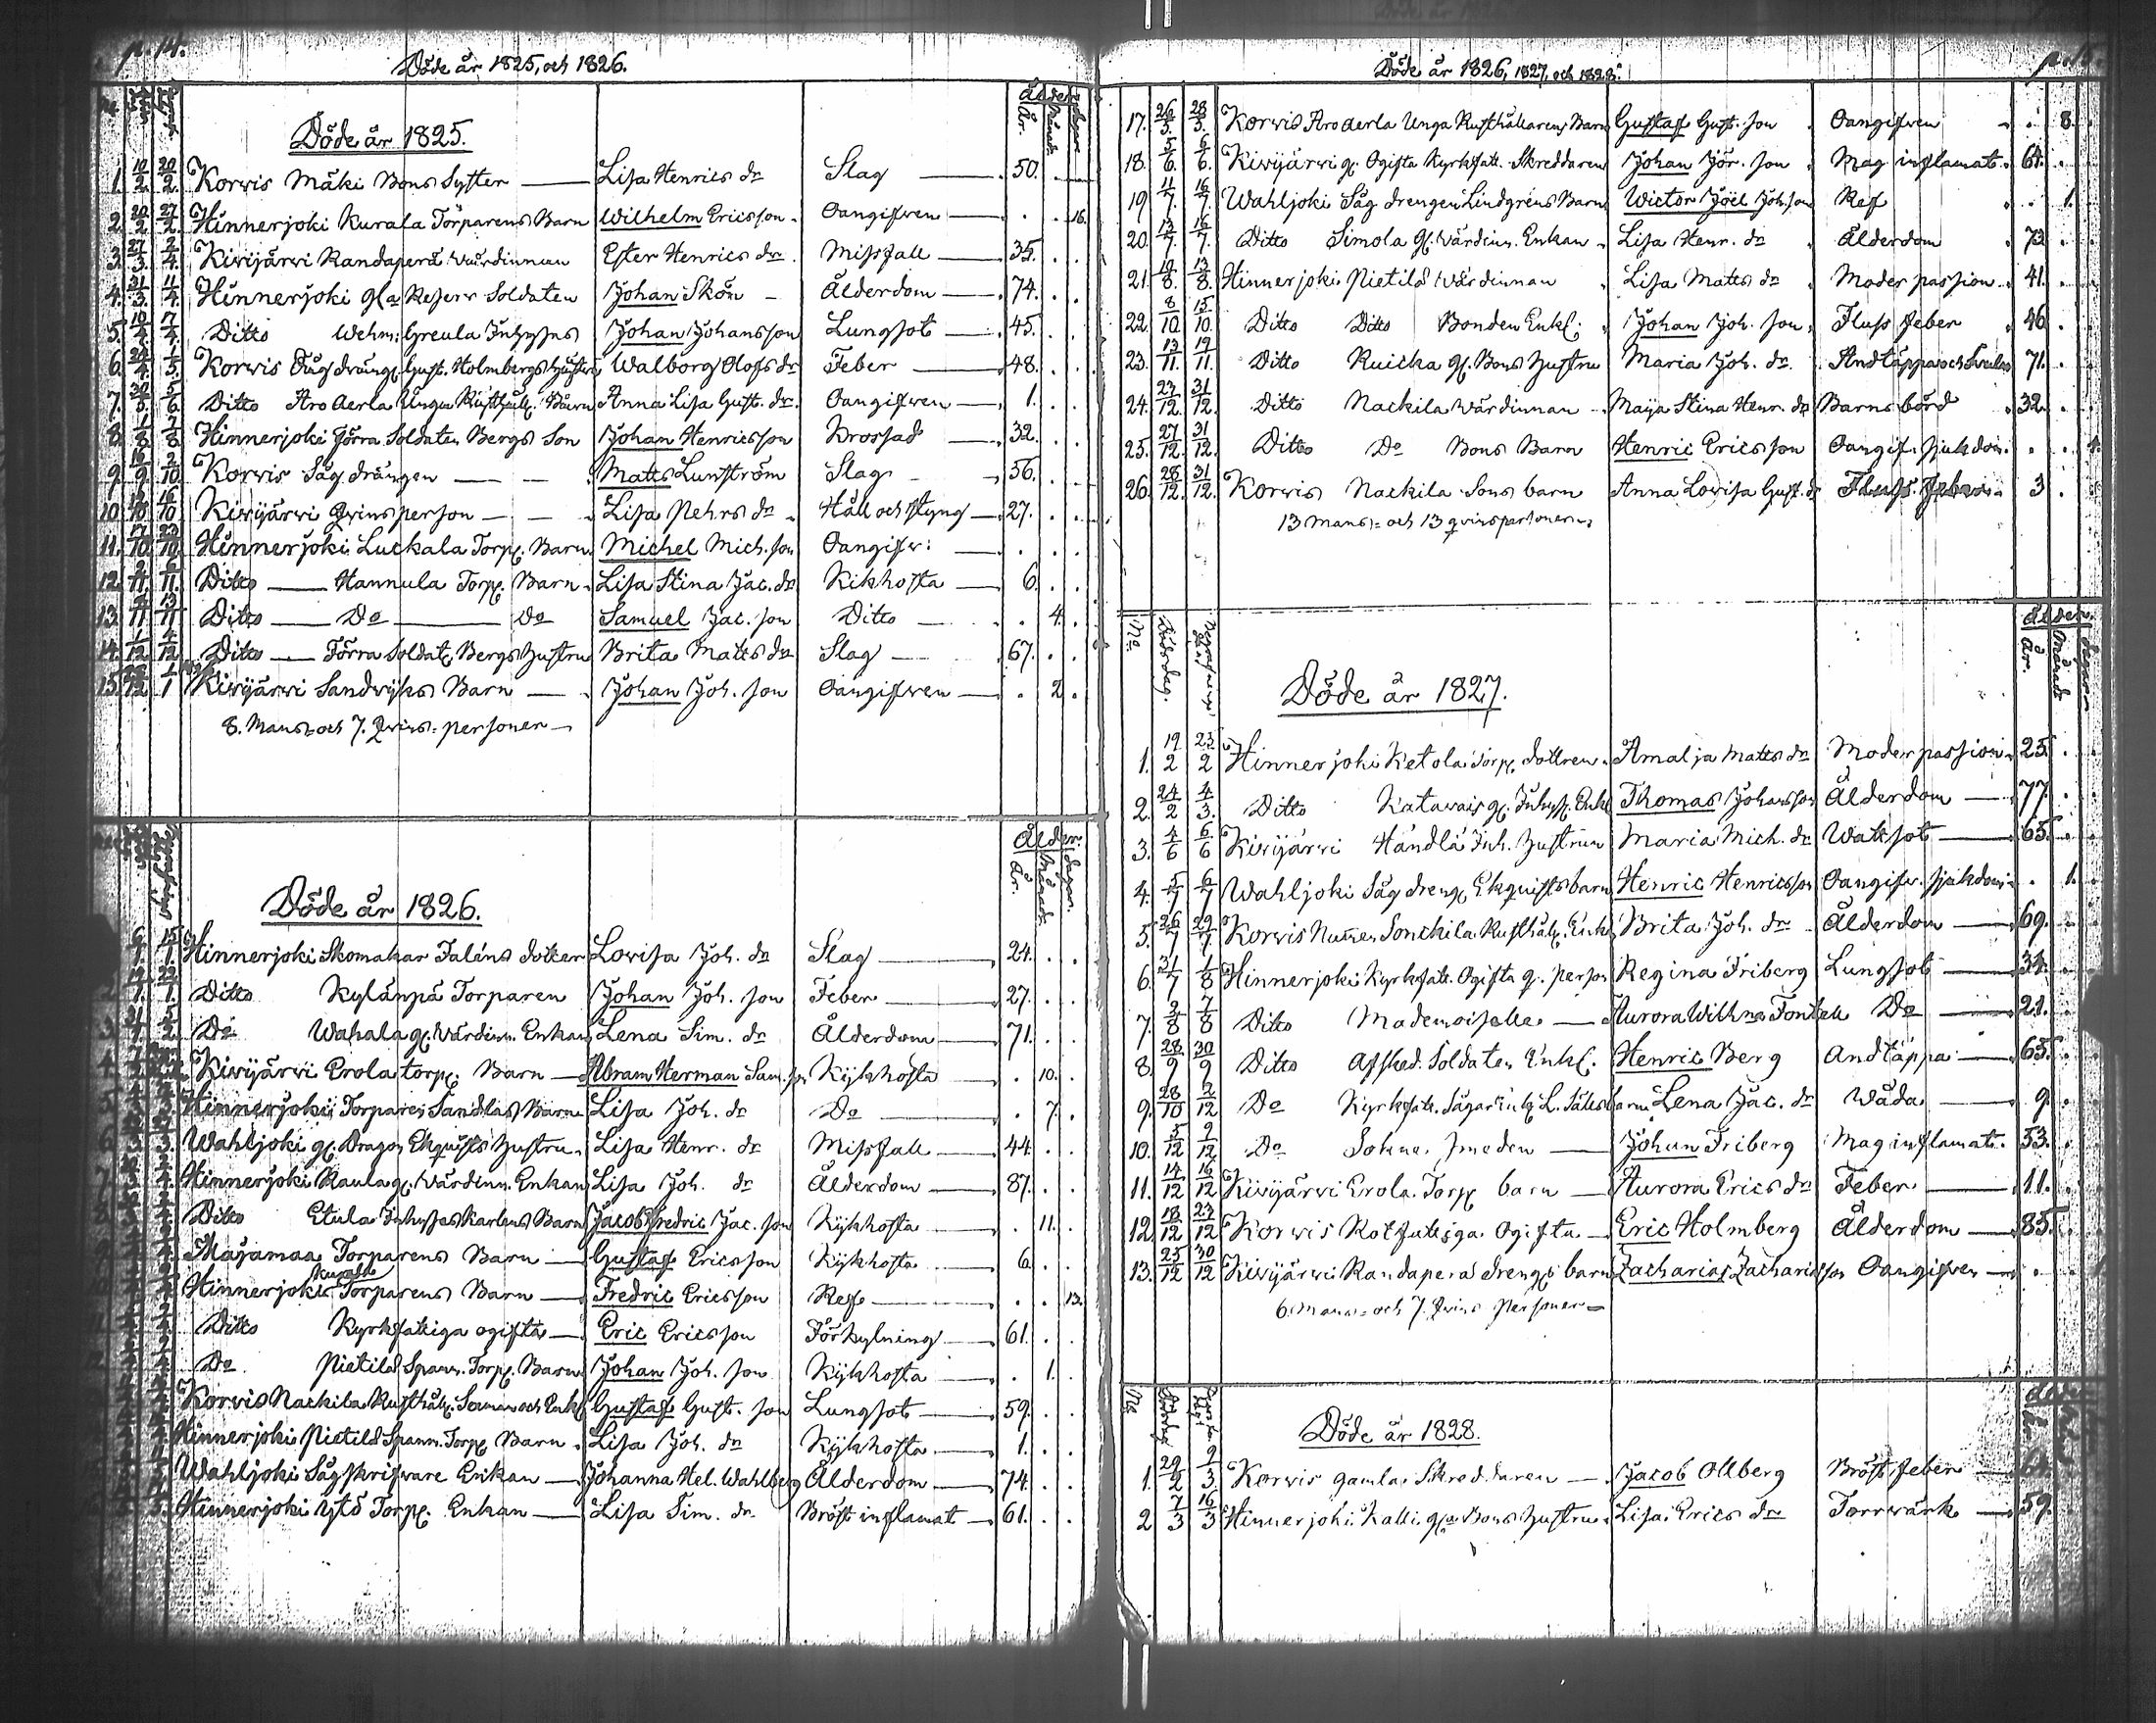 p. 14.
Döde år 1825, och 1826.
Ålder.
År. Månad. Dagar.
Döde år 1825.
1. 10/2. 20/2. Korvis Mäki Bons Syster — Lisa Henrics dr Slag — 50.
2. 20/2 27/2 Hinnerjoki Kurala Torparens Barn Wilhelm Ericsson Oangifwen — 16.
3. 27/3. 2/4. Kivijärvi Randaperä Wärdinnan Ester Henrics dr Missfall — 35.
4. 31/3. 11/4. Hinnerjoki gla Reserv Soldaten Johan Sköm — Ålderdom — 74.
5. 10/4. 17/4. Ditto Wehm: Greula Inhyses Johan Johansson Lungsot — 45.
6. 24/4. 1/5. Korvis Sågdräng. Gust. Holmbergs Hustru Walborg Olofs dr Feber — 48.
7. 30/5. 5/6. Ditto Aro Aerla Unga Rusthåll. Barn Anna Lisa Gust. dr. Oangifwen — 1.
8. 1/8 7/8 Hinnerjoki Förra Soldaten Bergs Son Johan Henricsson Krossad — 32.
9. 2/10 Korvis Såg drängen — — Matts Lunström Slag — 56.
10. 12/10 16/10 Kivijärvi Qvinsperson — — Lisa Pehrs dr Håll och styng — 27.
11. 17/10. 23/10. Hinnerjoki Luckala Torp. Barn Michel Mich. son Oangifw: —
12. 2/11. 6/11. Ditto — Hannula Torp. Barn Lisa Stina Jac. dr Kikhosta — 6.
13. 9/11 13/11 Ditto — Do — Do Samuel Jac. son Ditto — 4.
14. 1/12 4/12 Ditto — Förra Soldat. Bergs Hustru Brita Matts dr Slag — 67.
15. 1/1 Kivijärvi Sandwyks Barn — Johan Joh. son Oangifwen — 2.
8. Mans= och 7. Qvins= personer —
Ålder.
År. Månad. Dagar.
Döde år 1826.
15/1. Hinnerjoki Skomakar Faléns dotter Lovisa Joh. dr Slag — 24.
22/1. Ditto Kylänpä Torparen Johan Joh. son Feber — 27.
Do Wahala g. Wärdinn. Enkan Lena Sim. dr Ålderdom — 71.
Kivijärvi Erola torp. Barn — Abram Herman Sam. son Kykhosta — 10.
Hinnerjoki Torpare Sandlas Barn Lisa Joh. dr Do — 7.
Wahljoki g. Dragon Ekquists Hustru Lisa Henr. dr Missfall — 44.
Hinnerjoki Raula g. Wärdinn. Enkan Lisa Joh. dr Ålderdom — 87.
Ditto Etula Inhyses Karlens Barn Jacob Fredric Jac. son Kykhosta — 11.
Majamaa Torparens Barn — Gustaf Ericsson Kykhosta — 6.
Hinnerjoki Kurala Torparens Barn — Fredric Ericsson Ref — 13.
Ditto Kyrkfattiga ogifta — Eric Ericsson Förkylning — 61.
Do Pietilä Spann. Torp. Barn Johan Joh. son Kykhosta — 1.
Korvis Nackila Rusthåll. Sexman och Enkl. Gustaf Gust. son Lungsot — 59.
Hinnerjoki Pietilä Spann. Torp. Barn Lisa Joh. dr Kykhosta — 1.
Wahljoki Sågskrifvare Enkan — Johanna Hel. Wahlberg Ålderdom — 74.
Hinnerjoki Ytö Torp. Enkan — Lisa Sim. dr Bröst inflamat — 61.
Döde år 1826, 1827, och 1828.
17. 26/3. 28/3. Korvis Aro Aerla Unga Rusthållarens Barn Gustaf Gust. son Oangifven 8.
18. 5/6. 6/6. Kivijärvi g. Ogifta Kyrkfatt. Skreddaren Johan Jör. son Mag inflamat. 64.
19. 11/7. 16/7. Wahljoki Såg drengen Lindgréns Barn Wictor Joël Joh.son Ref 1.
20. 13/7. 16/7. Ditto Simola gl. Wärdinn. Enkan Lisa Henr. dr Ålderdom 73
21. 10/8. 13/8. Hinnerjoki Pietilä Wärdinnan Lisa Matts dr Moder passion. 41.
22. 8/10. 15/10. Ditto Ditto Bonden Enkl. Johan Joh. son Fluss feber 46.
23. 13/11. 19/11. Ditto Kuicka gl. Bons Hustru Maria Joh. dr Andtäppa och 71.
24. 23/12. 31/12. Ditto Nackila Wärdinnan Maija Stina Henr. dr Barnsbörd 32.
25. 27/12. 31/12. Ditto Do Bons Barn Henric Ericsson Oangif. sjukdom. 4.
26. 28/12. 31/12. Korvis Nackila Sons barn Anna Lovisa Gust. dr Fluss. feber. 3.
13 Mans= och 13 qvinspersoner.
No Dödsdag. Begrafnings
Ålder.
År. Månad. Dagar.
Döde år 1827.
1. 19/2 25/2 Hinnerjoki Ketola Torp. dottren Amalja Matts dr Moderpassion 25.
2. 24/2 4/3. Ditto Katavais g. Inhys. Enkl. Thomas Johansson Ålderdom — 77.
3. 4/6 6/6 Kivijärvi Händlä Inh. Hustrun Maria Mich. dr Wattsot — 65.
4. 5/7 6/7 Wahljoki Såg dreng. Ekquists barn Henric Henricsson Oangifv. sjukdom 1.
5. 26/7 29/7. Korvis Sonckila Rusthåll. Enk. Brita Joh. dr Ålderdom — 69.
6. 31/7 1/8 Hinnerjoki Kyrkfatt. Ogifta q. person Regina Friberg Lungsot — 34.
7. 2/8 7/8 Ditto Mademoiselle — Aurora Wilhna Fontell Do — 21.
8. 28/9 30/9 Ditto Afsked. Soldaten Enkl. Henric Berg Andtäppa — 65.
9. 28/10 2/12 Do Kyrkfatt. barn Lena Jac. dr Wåda — 9.
10. 5/12 9/12 Do Sokne Smeden — Johan Friberg Mag inflamat. 53.
11. 14/12 16/12 Kivijärvi Erola Torp. barn — Aurora Erics dr Feber — 11.
12. 18/12 23/12 Korvis Rotfattiga Ogifta — Eric Holmberg Ålderdom — 85.
13. 25/12 30/12 Kivijärvi Randaperä drengs barn Zacharias Zachariasson Oangifven —
6 Mans= och 7. Qvins Personer —
No
Ålder
Döde år 1828.
1. 29/2 2/3. Korvis gamla Skreddaren — Jacob Ollberg Bröst feber — 64.
2 7/3 16/3 Hinnerjoki Kalli gla Bons Hustru Lisa Erics dr Torrwärk — 59.